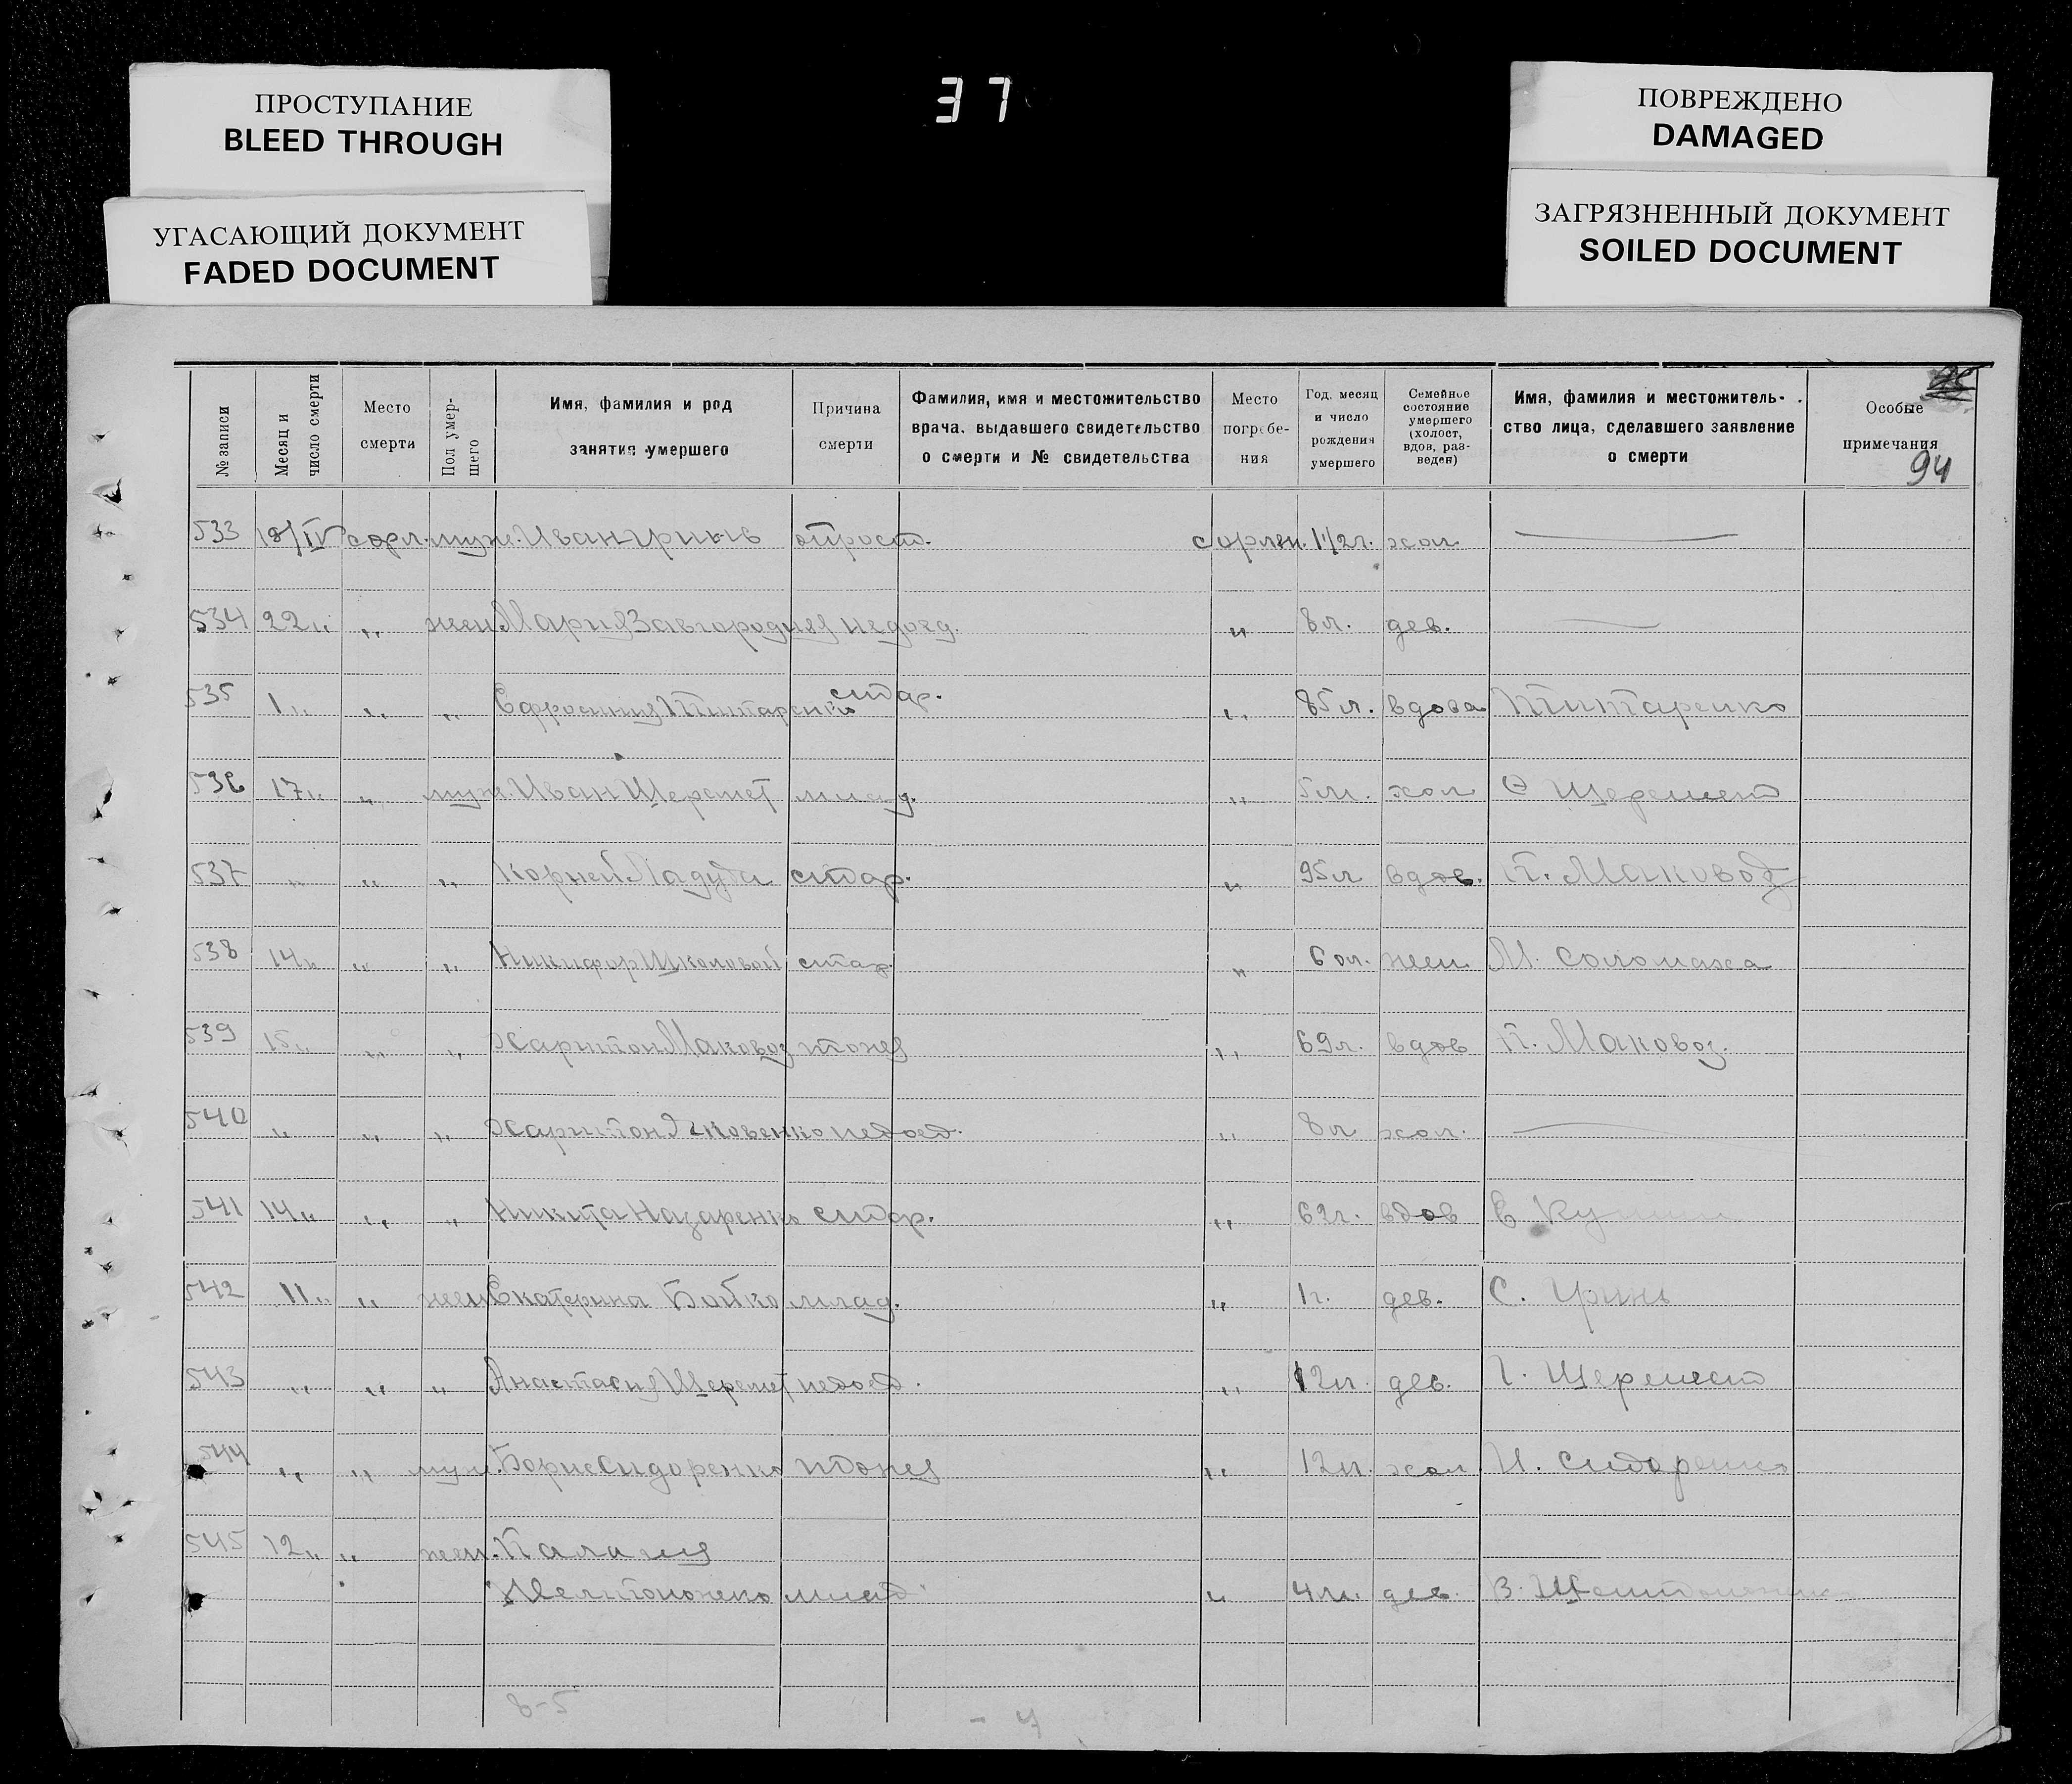 ПРОСТУПАНИЕ
BLEED THROUGH
УГАСАЮЩИЙ ДОКУМЕНТ
FADED DOCUMENT
37
ПОВРЕЖДЕНО
DAMAGED
ЗАГРЯЗНЕННЫЙ ДОКУМЕНТ
SOILED DOCUMENT
94
№ записи
Месяц и число смерти
Место смерти
Пол умершего
Имя, фамилия и род занятия умершего
Причина смерти
Фамилия, имя и местожительство врача, выдавшего свидетельство о смерти и № свидетельства
Место погребения
Год, месяц и число рождения умершего
Семейное состояние умершего (холост, вдов, разведен)
Имя, фамилия и местожительство лица, сделавшего заявление о смерти
Особые примечания
533 18/IV муж. Иван 1 1/2 г. хол
534 22 " " жен Мария Завгородняя недоед. " 8 л. дев.
535 1 " " " стар. " 85 л. вдова Титаренко
536 17 " " муж. Иван Шеремет млад. " хол Шеремет
537 " " " Корней стар. " 95 л вдов. П. Маковоз
538 14 " " " Никифор Школовой стар " 60 л. жен. М. Соломаха
539 15 " " " Харитон Маковоз " 69 л. вдов П. Маковоз.
540 " " " Харитон Яковенко недоед. " 8 л хол.
541 14 " " " Никита Назаренко стар. " 62 г. вдов Е
542 11 " " жен Екатерина Бойко млад. " 1 г. дев. С. Гринь
543 " " " Анастасия Шеремет недоед. " 12 л. дев. Г. Шеремет
544 " " муж. Борис Сидоренко " 12 л. хол И. Сидоренко
545 12 " " жен. Палагия
млад " дев. В.
8-5
- 4